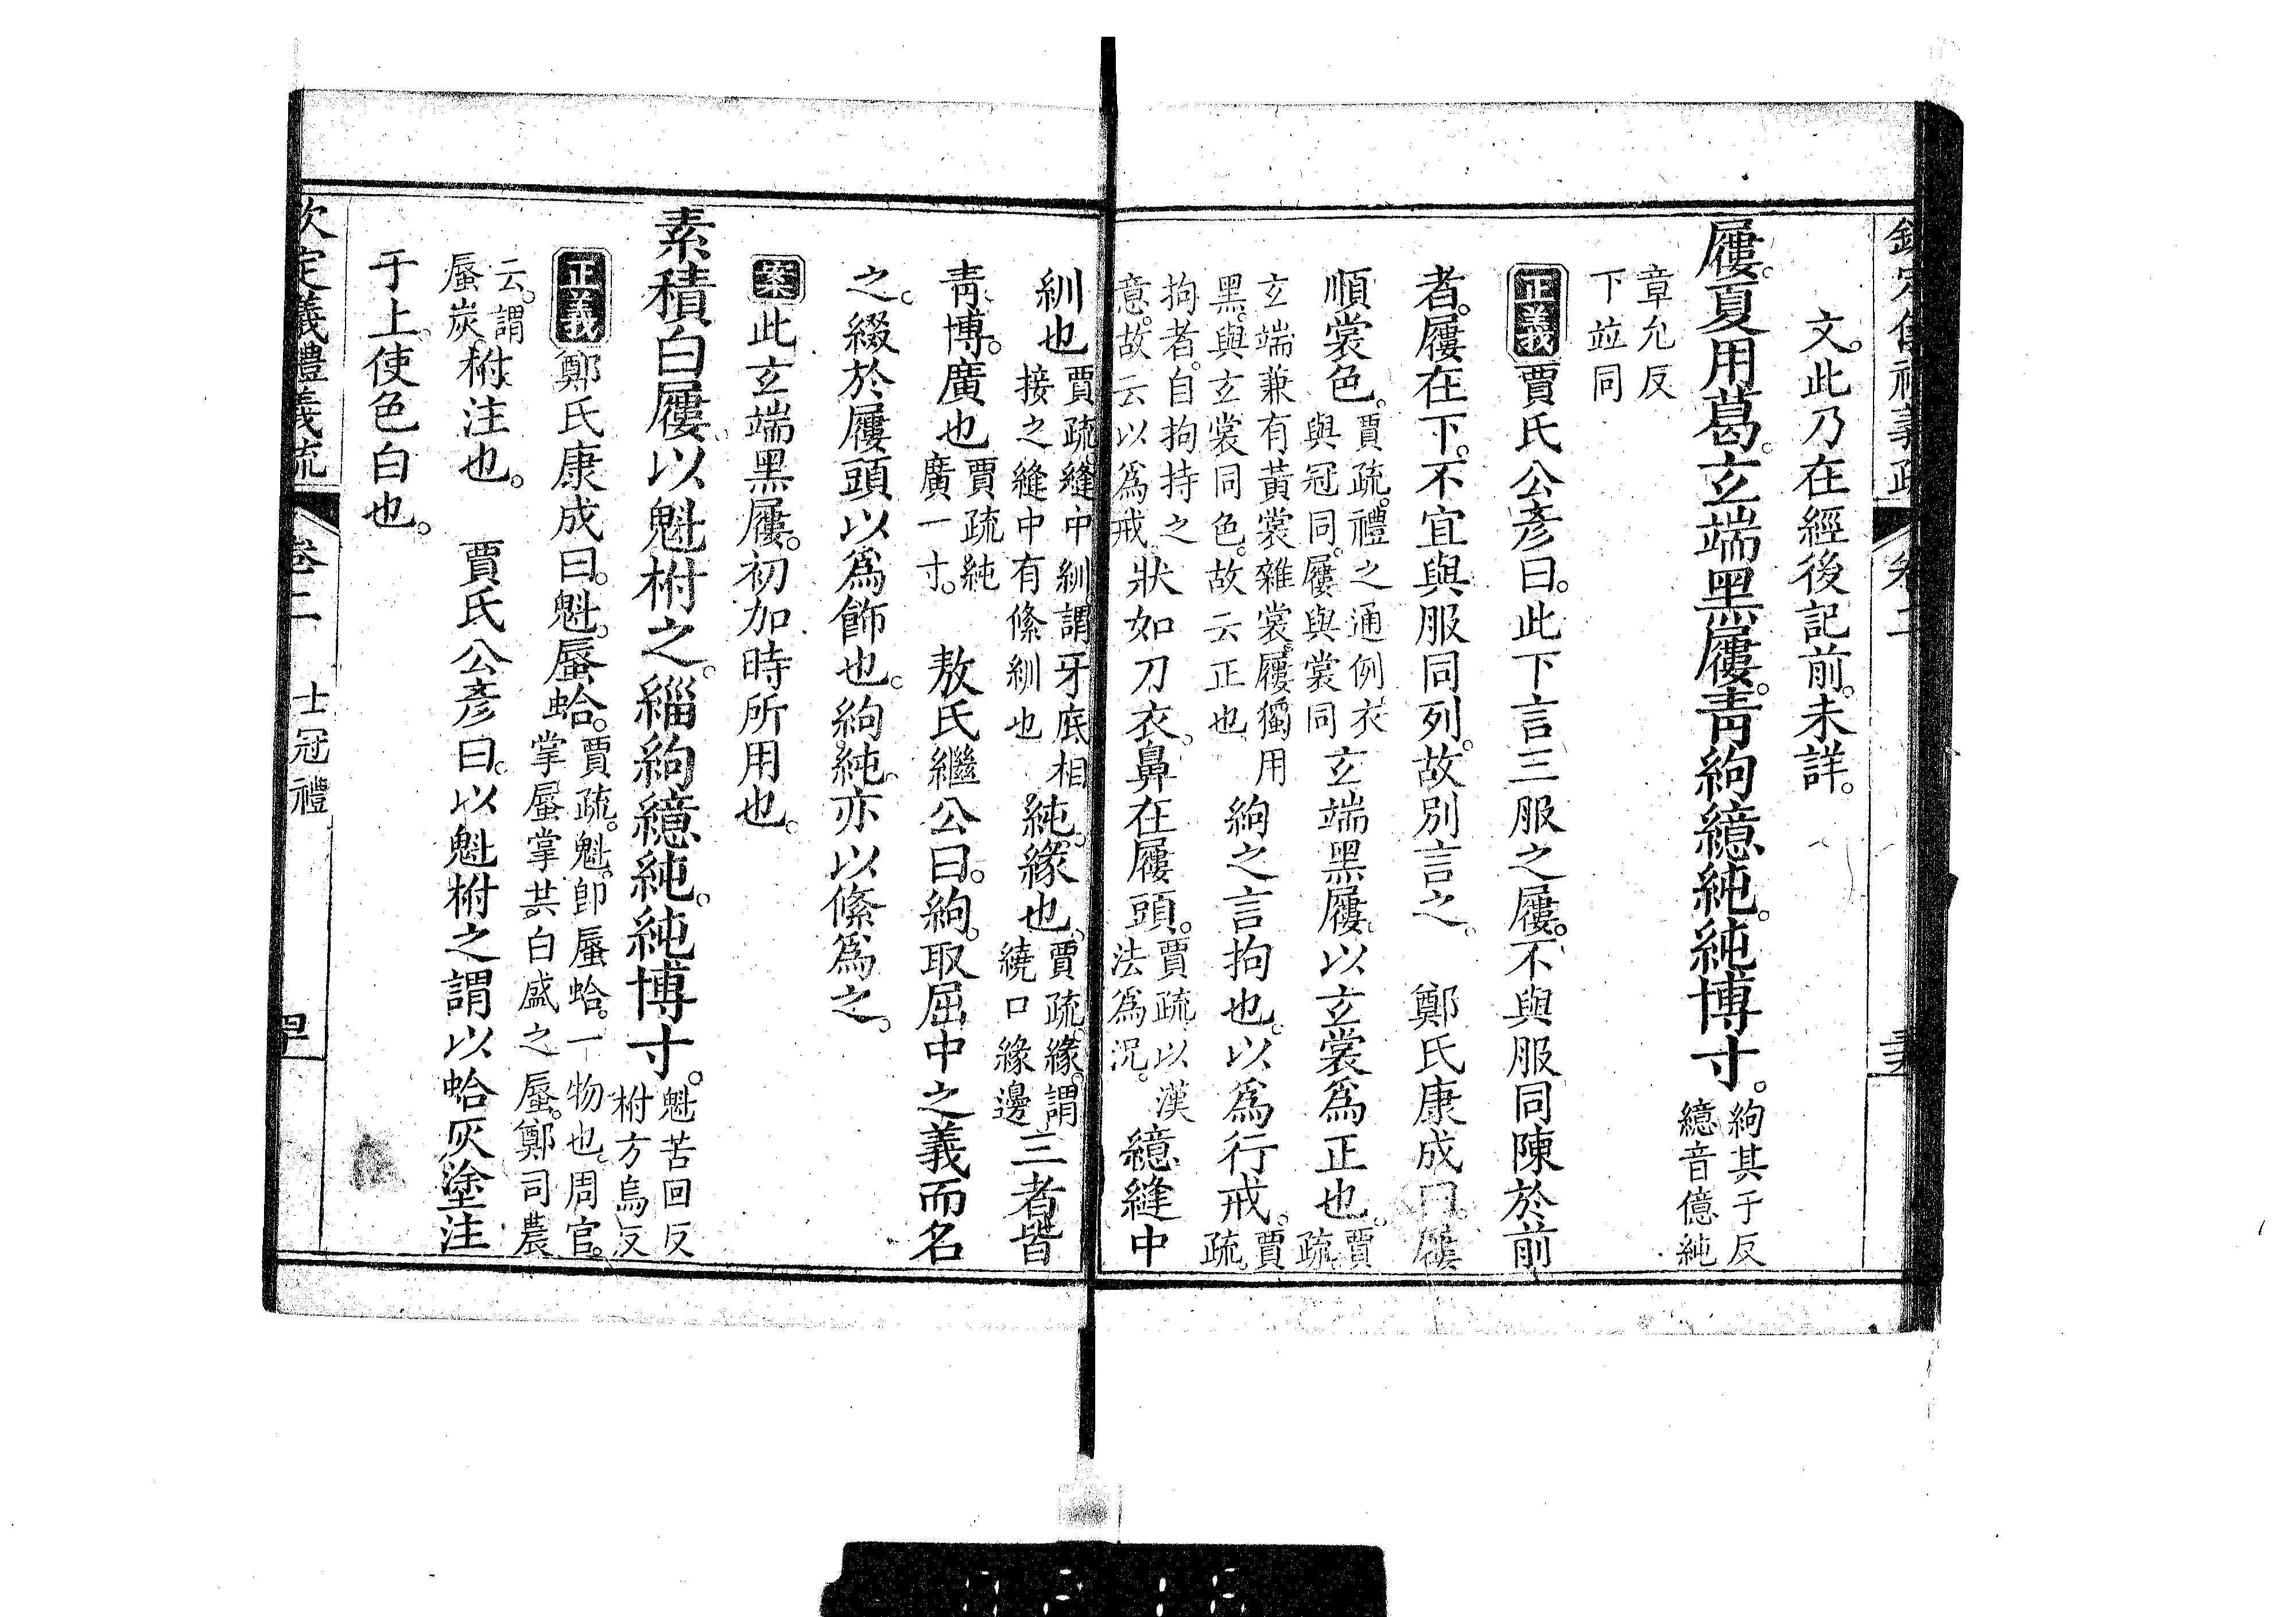 欽定儀禮義疏 卷二
文。此乃在經後記前。未詳。
屨。夏用葛。玄端黑屨。青絇繶純。純博寸。絇其于反繶音億純
章允反下竝同
正義賈氏公彥曰。此下言三服之屨。不與服同陳於前
者。屨在下。不宜與服同列。故別言之。 鄭氏康成曰。屨
順裳色。賈疏。禮之通例衣與冠同。屨與裳同玄端黑屨。以玄裳爲正也。賈疏
玄端兼有黃裳雜裳。屨獨用黑。與玄裳同色。故云正也絇之言拘也。以爲行戒。賈疏
拘者。自拘持之意。故云以爲戒。狀如刀衣。鼻在屨頭。賈疏以漢法爲況。繶縫中
紃也賈疏。縫中紃謂牙底相接之縫中有絛紃也純。緣也。賈疏緣。謂繞口緣邊三者皆
青。博。廣也賈疏純廣一寸。 敖氏繼公曰。絇。取屈中之義而名
之。綴於屨頭以爲飾也。絇純。亦以絛爲之。
案此玄端黑屨。初加時所用也。
素積白屨以魁柎之。緇絇繶純。純博寸。魁苦回反柎方烏反
正義鄭氏康成曰。魁。蜃蛤。賈疏。魁。卽蜃蛤。一物也。周官。掌蜃掌共。白盛之蜃。鄭司農
云。謂蜃炭。柎。注也。 賈氏公彥曰。以魁柎之謂以蛤灰塗注
于上。使色白也。
欽定儀禮義疏 卷二 士冠禮 四十